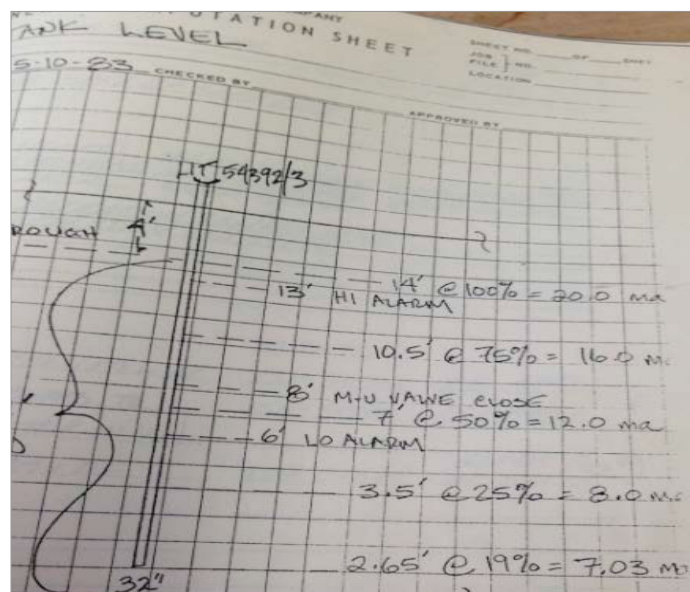 TATION SHEET
TANK LEVEL
SHEET NO. OF SHET
JOB } NO.
FILE
LOCATION
5-10-83 CHECKED BY
APPROVED BY
54392/3
4'
ROUGH
14' @ 100% = 20.0 ma
13' HI ALARM
10.5' @ 75% = 16.0 m
8' M-U VALVE CLOSE
7' @ 50% = 12.0 ma
6' LO ALARM
3.5' @ 25% = 8.0 m
2.65' @ 19% = 7.03 ma
32"